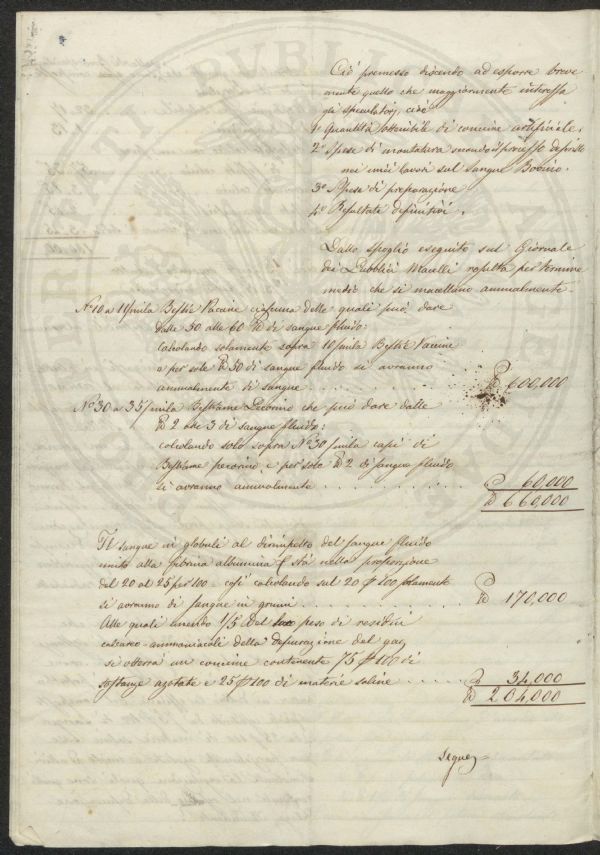 Ciò premesso discendo ad esporre breve
mente quello che maggiormente interessa
gli speculatori, cioè
1o Quantità ottenibile di concime artificiale.
2o Spese di montatura secondo il processo descritto
nei miei lavori sul Sangue Bovino.
3o Spese di preparazione
4o Resultate definitivi.
Dallo spoglio eseguito sul Giornale
dei Pubblici Macelli resulta per termine
medio che si macellano annualmente
No 10 a 11/mila Bestie Vaccine ciascuna delle quali può dare
dalle 50 alle 60 lb di sangue fluido:
calcolando solamente sopra 10/mila Bestie Vaccine
e per sole lb 50 di sangue fluido si avranno
annualmente di sangue . . . . . lb 600,000
No 30 a 35/mila Bestiame Pecorino che può dare dalle
lb 2 alle 3 di sangue fluido:
calcolando solo sopra No 30/mila capi di
Bestiame pecorino, e per sole lb 2 di sangue fluido
si avranno annualmente . . . . . . . . . . 60,000
lb 660,000
Il sangue in globuli al dirimpetto del sangue fluido
unito alla fibrina albumina & stà nella proporzione
del 20 al 25 per 100 - così calcolando sul 20 p 100 solamente
si avranno di sangue in grumi . . . . . . . lb 170,000
Alle quali unendo 1/5 del suo peso di residui
calcareo-ammoniacali della depurazione del gaz
si otterrà un concime contenente 75 p 100 di
sostanze azotate e 25 p 100 di materie saline . . . . 34,000
lb 204,000
segue